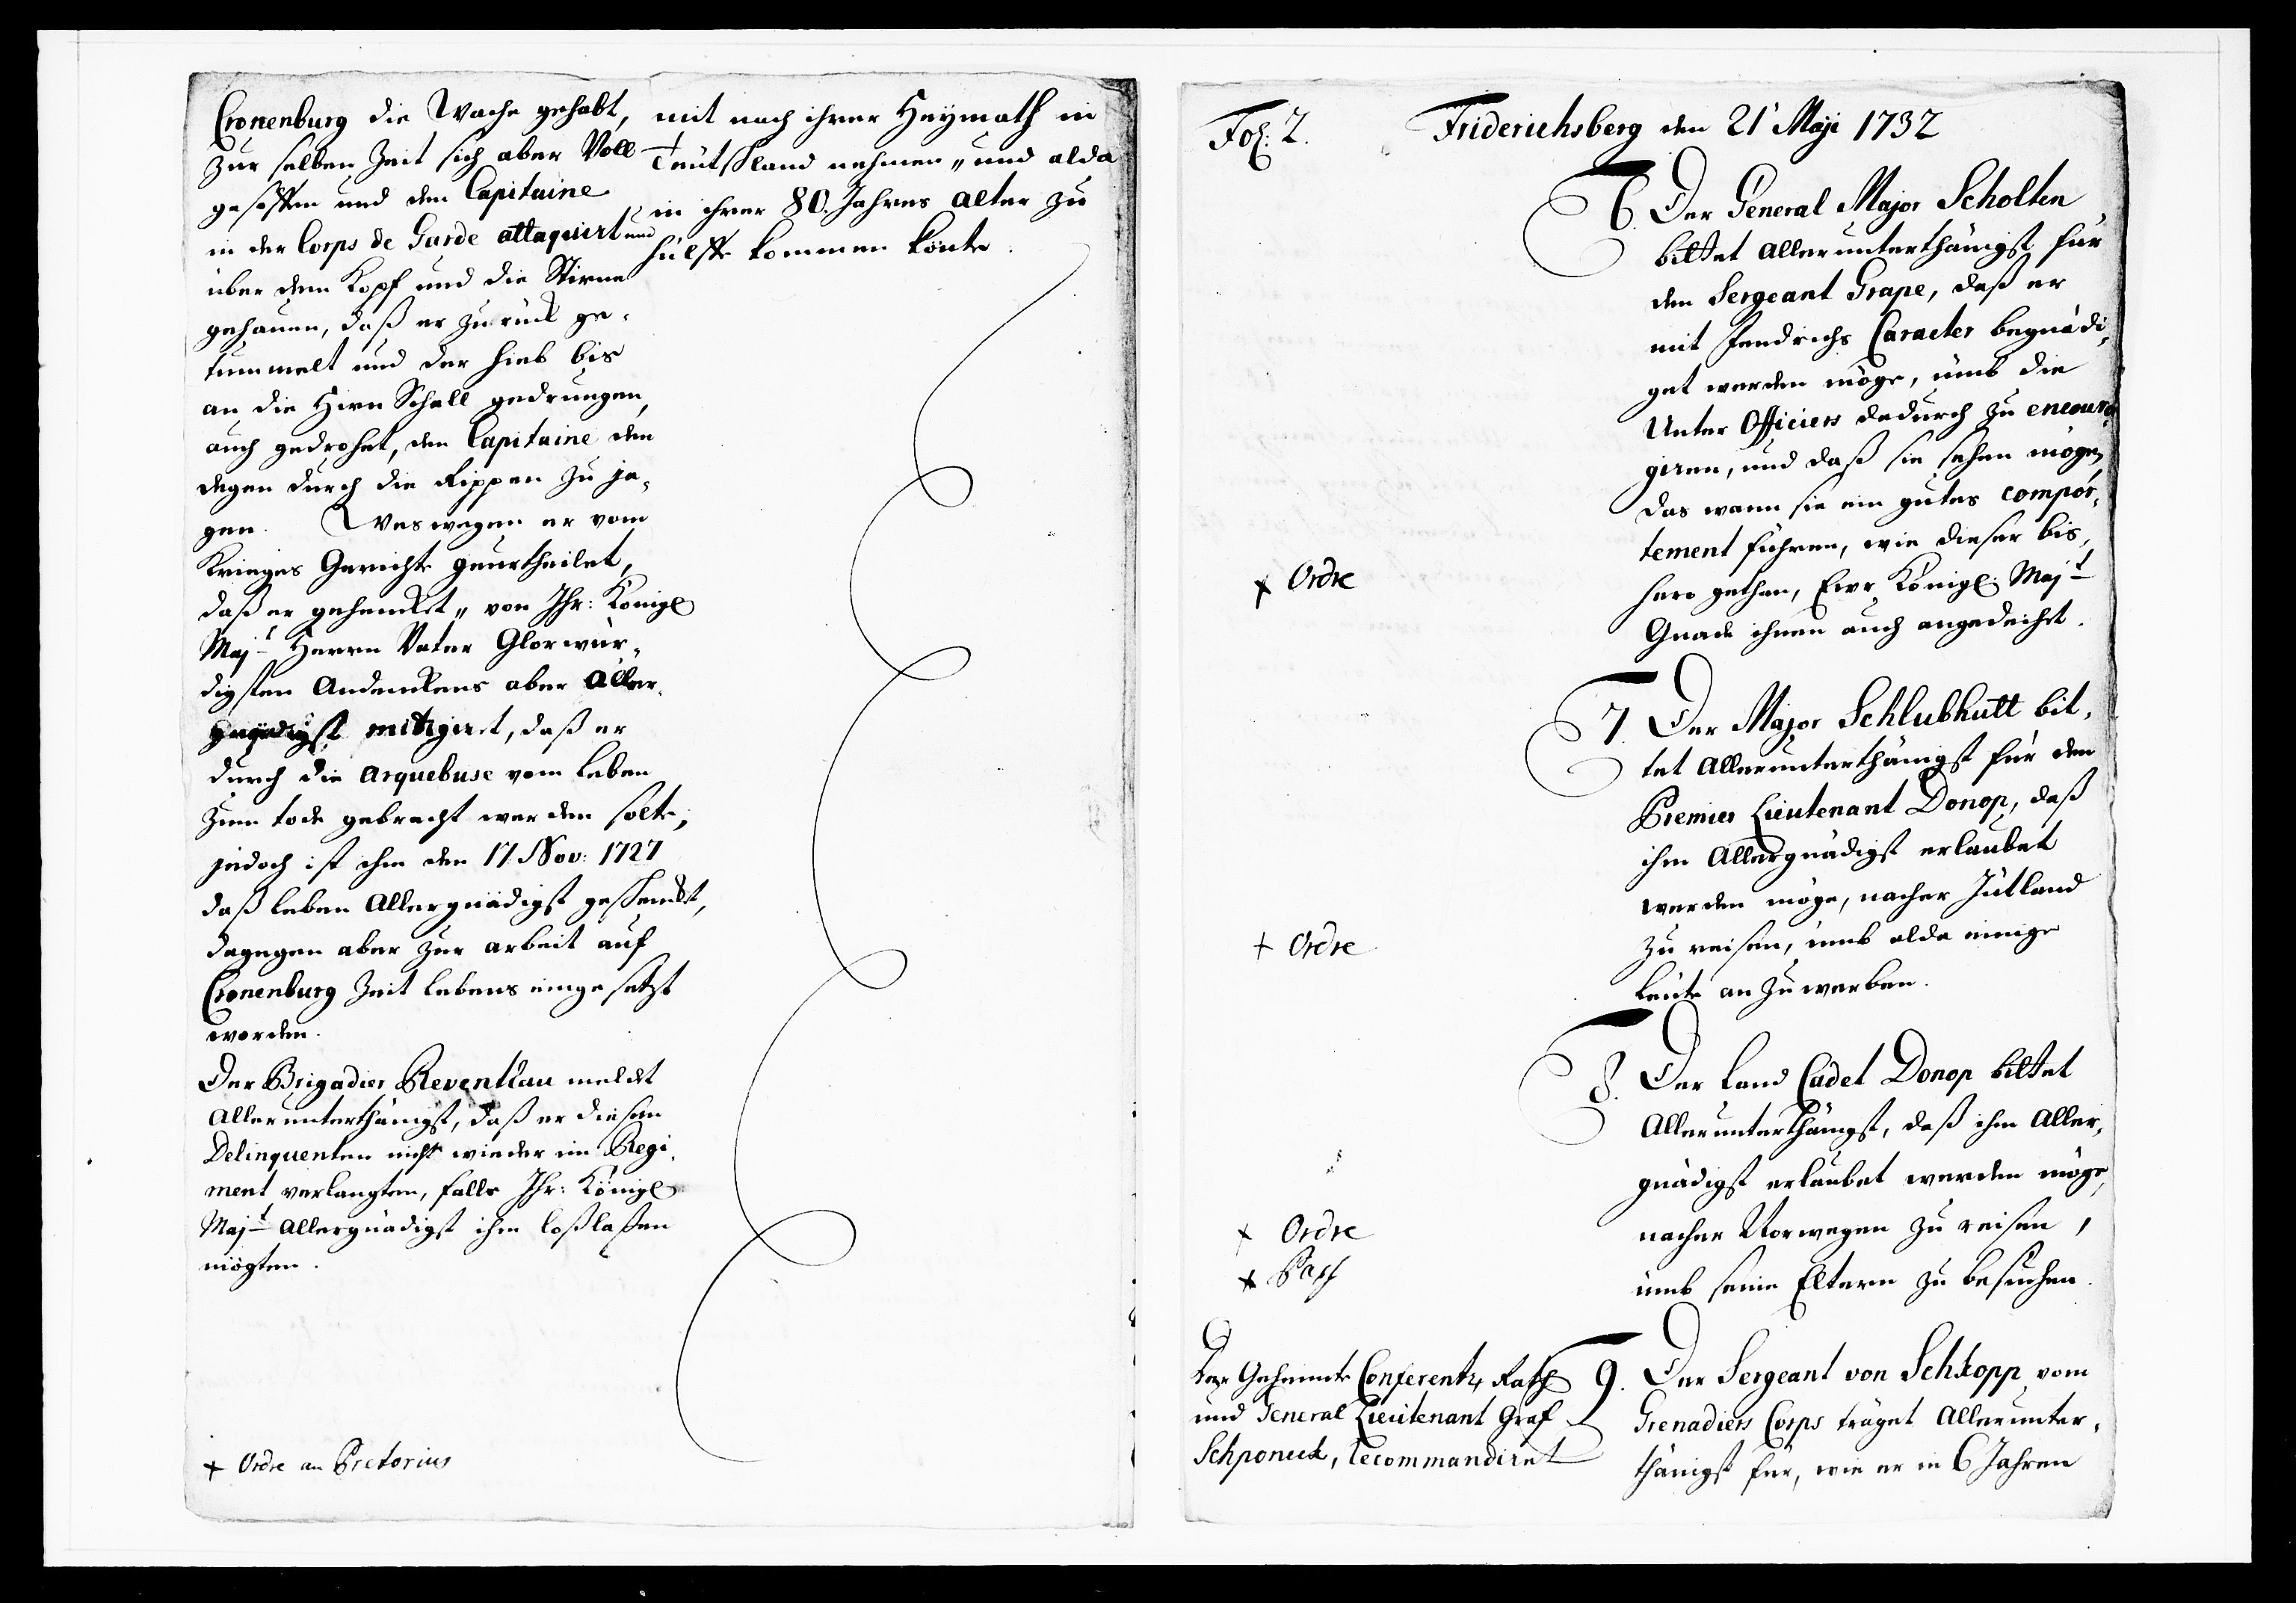 Cronenburg die Wache gehabt,
zur selben Zeit sich aber Voll
gesoffen und den Capitaine
in der Corps de Garde attaquirt und
über dem Kopf und die Stirne
gehauen, daß er zurück ge-
tummelt und der hieb bis
an die Hirn Schall gedrungen,
auch gedrohet, den Capitaine den
degen durch die Rippen zu ja-
gen. Weswegen er vom
Krieges Gerichte geurtheilet,
daß er gehenket, von Ihr: Königl
Majt Herrn Vater Glorwür-
digsten Andenckens aber Aller-
gnädigst mitigiret, daß er
durch die Arquebuse vom leben
zum tode gebracht werden solte,
jedoch ist ihm den 17 Nov: 1727
daß leben Allergnädigst geschenckt,
dagegen aber zur arbeit auf
Cronenburg Zeit lebens eingesetzt
worden.
Der Brigadier Reventlau meldet
Allerunterthänigst, daß er diesen
Delinquenten nicht wieder im Regi-
ment verlangten, falls Ihr: Königl
Majt Allergnädigst ihm loßlaßen
mögten.
+ Ordre an Pretorius
mit nach ihrer Heymath in
Teutschland nehmen, und alda
in ihrer 80. Jahres alter zu
hülffe kommen könte.
Fol: 2. Friderichsberg den 21t Maji 1732
6. Der General Major Scholten
bittet allerunterthänigst für
den Sergeant Grape, daß er
mit Fendrichs Caracter begnädi-
get werden möge, umb die
Unter Officiers dadurch zu encoura-
giren, und daß sie sehen mögen,
das wann sie ein gutes compor-
tement führen, wie dieser bis-
hero gethan, Ewr Königl: Majt
Gnade ihnen auch angedeihet.
+ Ordre
7. Der Major Schlubhutt bit-
tet Allerunterthänigst für den
Premier Lieutenant Donop, daß
ihm Allergnädigst erlaubet
werden möge, nacher Jütland
zu reisen, umb alda einige
Leute an zu werben.
+ Ordre
8. Der Land Cadet Donop bittet
Allerunterthänigst, daß ihm Aller-
gnädigst erlaubet werden möge,
nacher Norwegen zu reisen,
umb seine Eltern zu besuchen.
+ Ordre
+ Pass
9. Der Sergeant von Schkopp vom
Grenadiers Corps träget Allerunter-
thänigst für, wie er in 6 Jahren
Der Geheimte Conferentz Rath
und General Lieutenant Graf
Schponeck, recommandiret